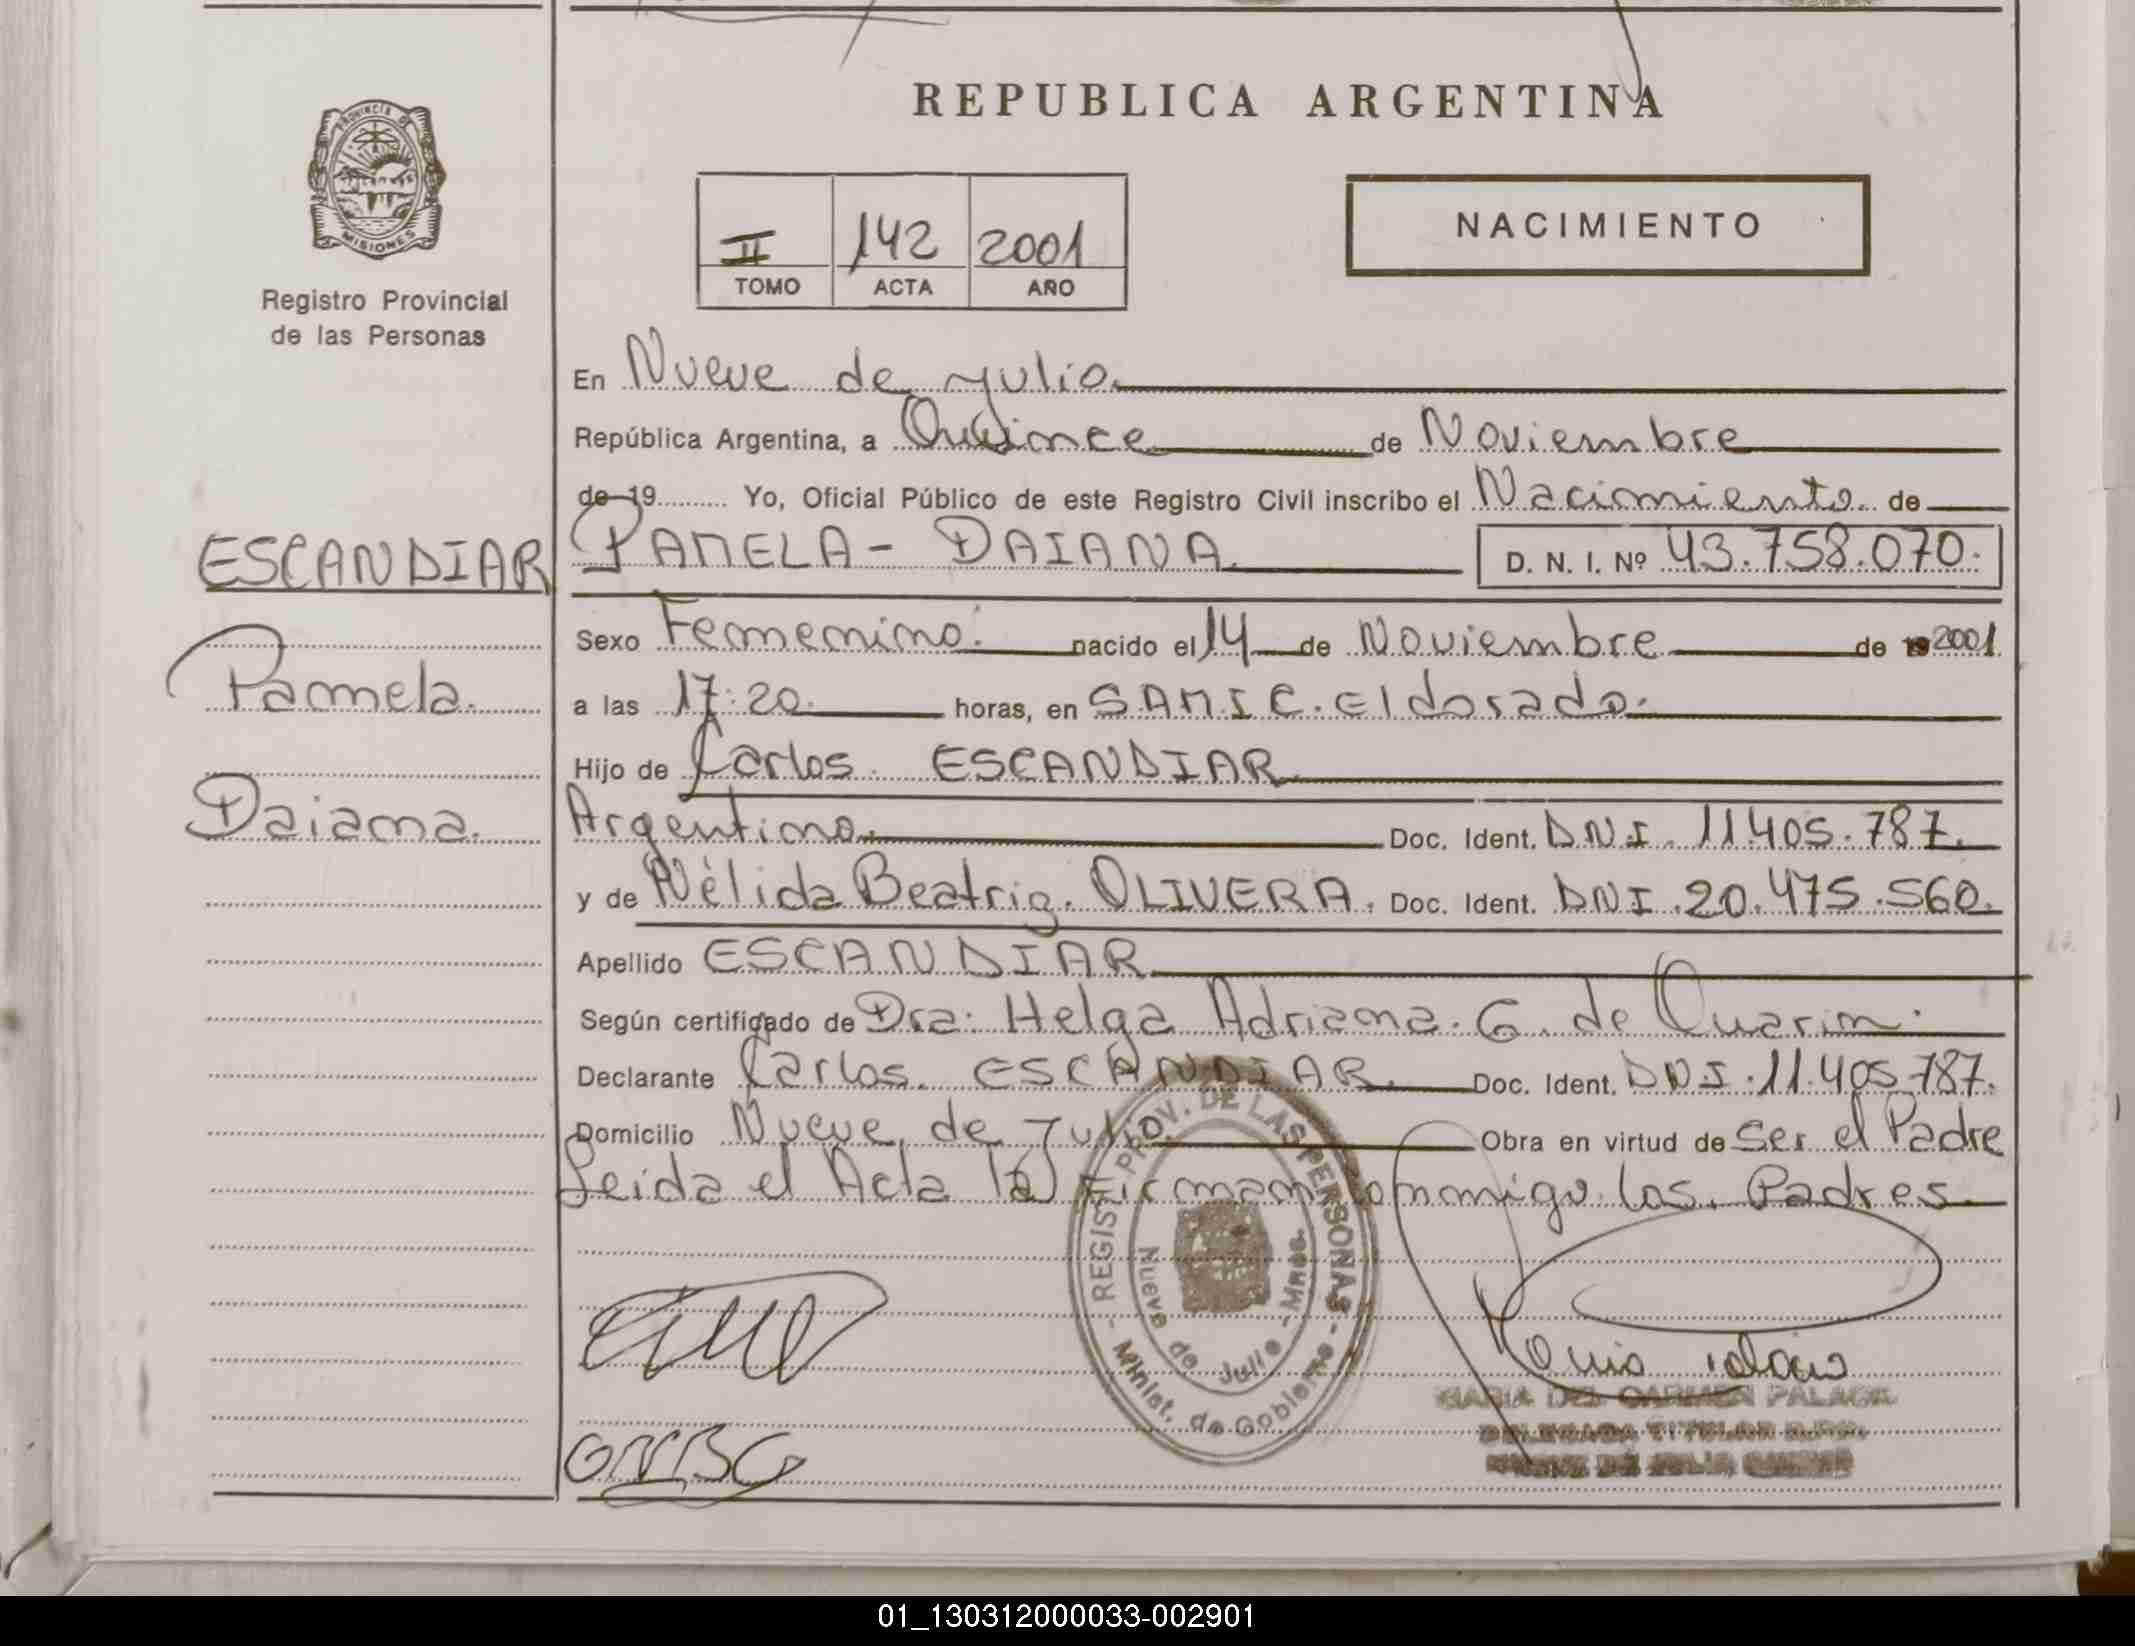 REPUBLICA ARGENTINA
PROVINCIA DE
MISIONES
Registro Provincial
de las Personas
II 142 2001
TOMO ACTA AÑO
NACIMIENTO
En Nueve de julio
República Argentina, a Quince de Noviembre
de 19 Yo, Oficial Público de este Registro Civil inscribo el Nacimiento de
ESCANDIAR
Pamela
Daiana
PAMELA - DAIANA D. N. I. Nº 43.758.070.
Sexo Femenino. nacido el 14 de Noviembre de 2001
a las 17:20. horas, en SAMIC. Eldorado.
Hijo de Carlos ESCANDIAR
Argentino. Doc. Ident. DNI. 11.405.787.
y de Nélida Beatriz. OLIVERA. Doc. Ident. DNI.20.475.560.
Apellido ESCANDIAR
Según certificado de Dra. Helga Adriana. G. de Quarin.
Declarante Carlos. ESCANDIAR. Doc. Ident. DNI.11.405.787.
Domicilio Nueve de Julio. Obra en virtud de Ser el Padre
Leida el Acta la firman conmigo los Padres.
REGIST. PROV. DE LAS PERSONAS
Nueve de Julio - Mnes.
- Minist. de Gobierno -
MARIA DEL CARMEN PALACIO
DELEGADA TITULAR R.P.P.
NUEVE DE JULIO
01_130312000033-002901